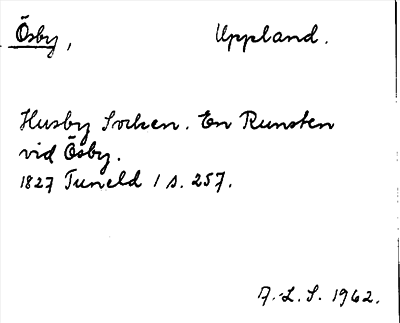 Ösby, Uppland.
Husby Socken. En Runsten
vid Ösby.
1827 Tuneld 1 s. 257.
A.-L. S. 1962.